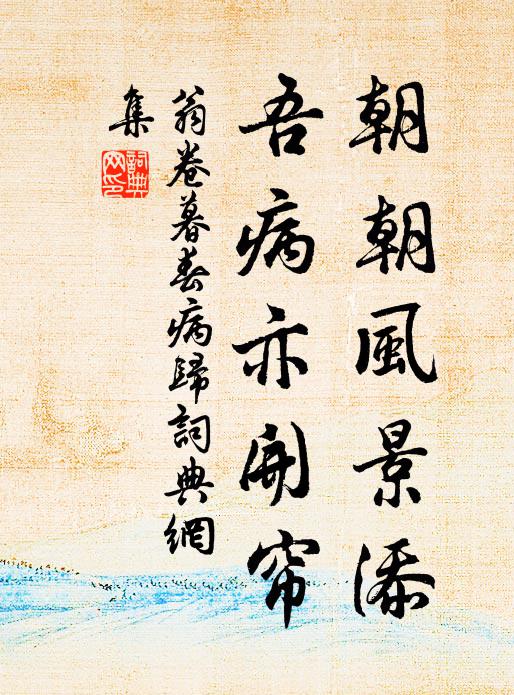 朝朝風景添
吾病亦開帘
翁卷暮春病歸詞典網
集
詞典
网印